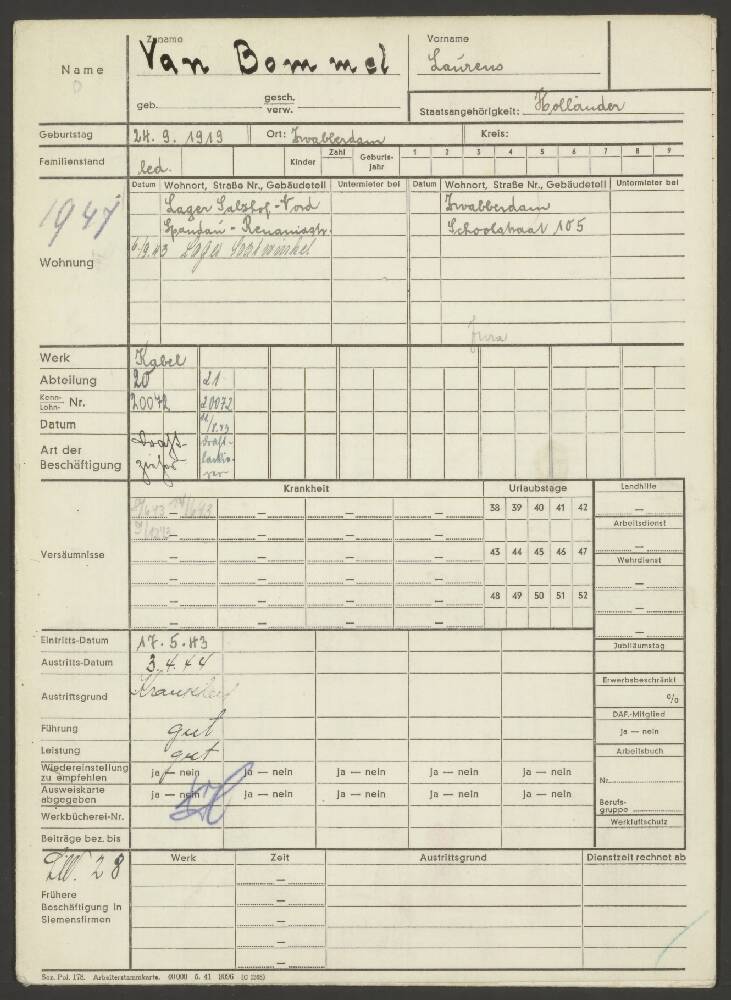 Name
Zuname
Van Bommel
geb.
gesch.
verw.
Vorname
Laurens
Staatsangehörigkeit: Holländer
Geburtstag 24. 9. 1919 Ort: Zwabberdam Kreis:
Familienstand led. Kinder Zahl Geburts-jahr 1 2 3 4 5 6 7 8 9
1947
Wohnung
Datum Wohnort, Straße Nr., Gebäudeteil Untermieter bei Datum Wohnort, Straße Nr., Gebäudeteil Untermieter bei
Lager Salzhof-Nord Zwabberdam
Spandau - Schoolstraat 105
6/9.43 Lager
Werk Kabel
Abteilung 20 21
Kenn-
Lohn- Nr. 20072 20072
Datum
Art der
Beschäftigung
Draht-
zieher
Draht-
Krankheit Urlaubstage Landhilfe
38 39 40 41 42
Arbeitsdienst
Versäumnisse
43 44 45 46 47
Wehrdienst
48 49 50 51 52
Eintritts-Datum 17. 5. 43
Jubiläumstag
Austritts-Datum 3. 4. 44
Erwerbsbeschränkt
%
Austrittsgrund Krankheit
DAF.-Mitglied
Führung gut
ja — nein
Leistung gut
Arbeitsbuch
Wiedereinstellung
zu empfehlen ja — nein ja — nein ja — nein ja — nein ja — nein
Nr.
Ausweiskarte
abgegeben ja — nein ja — nein ja — nein ja — nein ja — nein
Berufs-
gruppe
Werkbücherei-Nr.
Werkluftschutz
Beiträge bez. bis
28
Werk Zeit Austrittsgrund Dienstzeit rechnet ab
Frühere
Beschäftigung in
Siemensfirmen
Soz. Pol. 178. Arbeiterstammkarte.